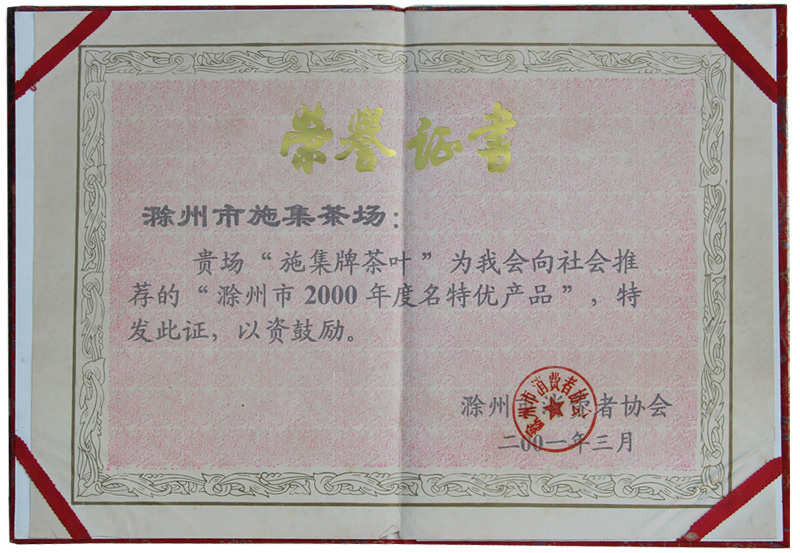 荣誉证书
滁州市施集茶场：
贵场“施集牌茶叶”为我会向社会推
荐的“滁州市2000年度名特优产品”，特
发此证，以资鼓励。
滁州市消费者协会
滁州市消费者协会
二00一年三月